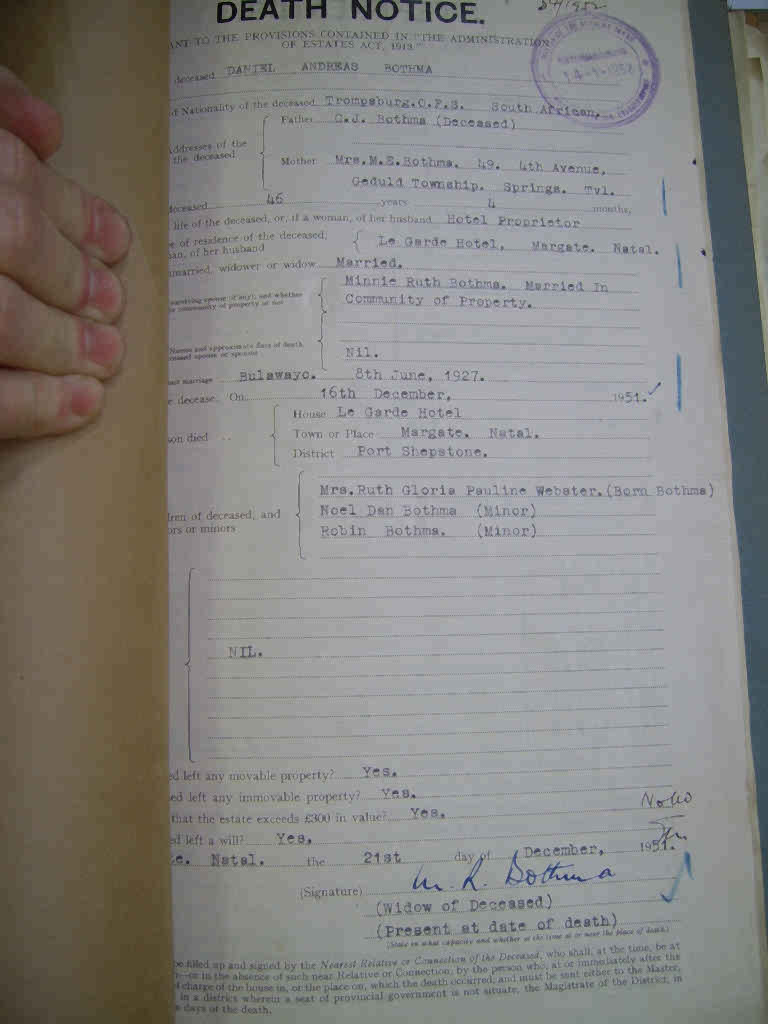 DEATH NOTICE.
ANT TO THE PROVISIONS CONTAINED IN "THE ADMINISTRATION
OF ESTATES ACT, 1913."
deceased DANIEL ANDREAS BOTHMA
d Nationality of the deceased Trompsburg.O.F.S. South African.
Father C.J. Bothma (Deceased)
Addresses of the
the deceased
Mother Mrs.M.E.Bothma. 49. 4th Avenue,
Geduld Township. Springs. Tvl.
deceased 46 years 4 months,
life of the deceased, or, if a woman, of her husband Hotel Proprietor
e of residence of the deceased,
an, of her husband Le Garde Hotel, Margate. Natal.
unmarried, widower or widow Married.
surviving spouse (if any), and whether Minnie Ruth Bothma. Married In
community of property or not Community of Property.
Names and approximate date of death
ceased spouse or spouses Nil.
last marriage Bulawayo. 8th June, 1927.
e decease. On 16th December, 1951.
House Le Garde Hotel
son died Town or Place Margate. Natal.
District Port Shepstone.
Mrs.Ruth Gloria Pauline Webster.(Born Bothma)
dren of deceased, and Noel Dan Bothma (Minor)
ors or minors Robin Bothma. (Minor)
NIL.
ed left any movable property? Yes.
ed left any immovable property? Yes.
that the estate exceeds £300 in value? Yes.
ed left a will? Yes.
te. Natal. the 21st day of December, 1951.
(Signature) M. R. Bothma
(Widow of Deceased)
(Present at date of death)
(State in what capacity and whether at the time at or near the place of death.)
be filled up and signed by the Nearest Relative or Connection of the Deceased, who shall, at the time, be at
—or in the absence of such near Relative or Connection, by the person who, at or immediately after the
d charge of the house in, or the place on, which the death occurred; and must be sent either to the Master,
in a district wherein a seat of provincial government is not situate, the Magistrate of the District, in
days of the death.